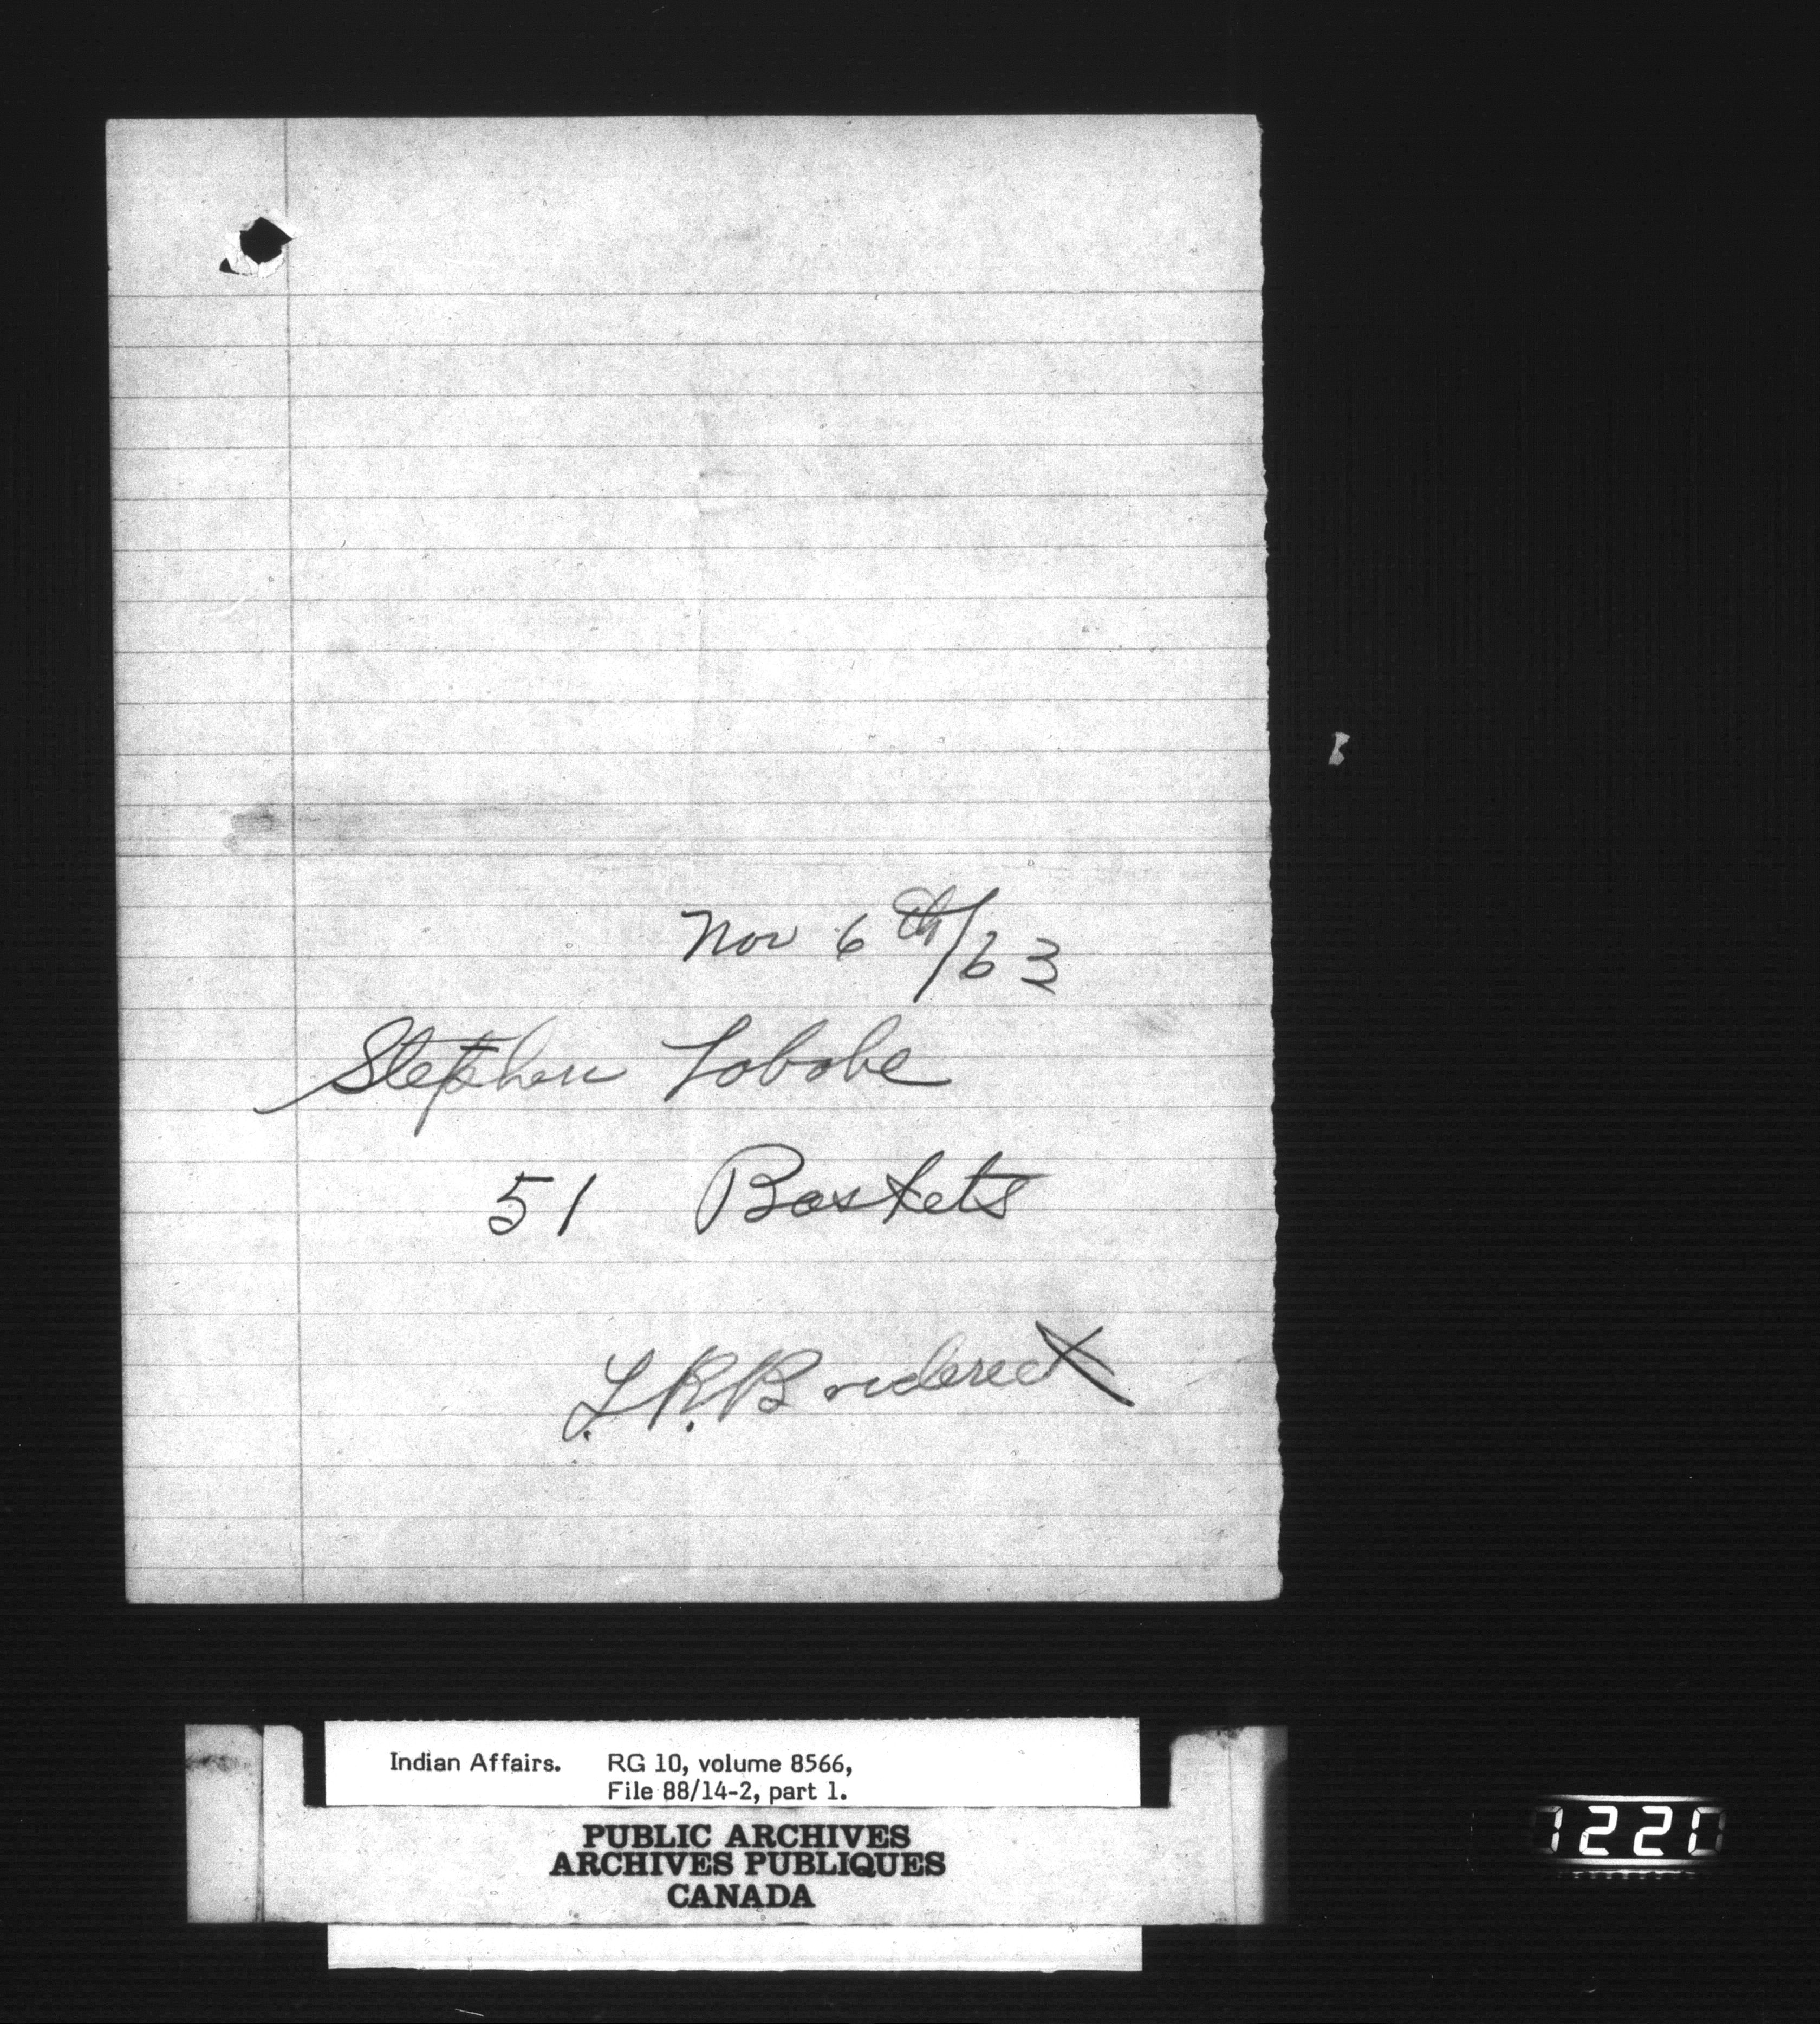 Nov 6th/63
Stephen Lobobe
51 Baskets
L.R. Broderick
Indian Affairs. RG 10, volume 8566,
File 88/14-2, part 1.
PUBLIC ARCHIVES
ARCHIVES PUBLIQUES
CANADA
1220